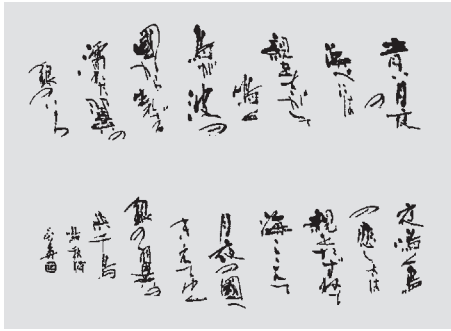 青い月夜
の
浜べには
親をさがして
啼く
鳥が波の
國から生れでる
濡れた翼の
銀のいろ
夜啼く鳥
の悲しさは
親をたずねて
海こえて
月夜の國へ
きえてゆく
銀の翼の
浜千鳥
鳴秋詩